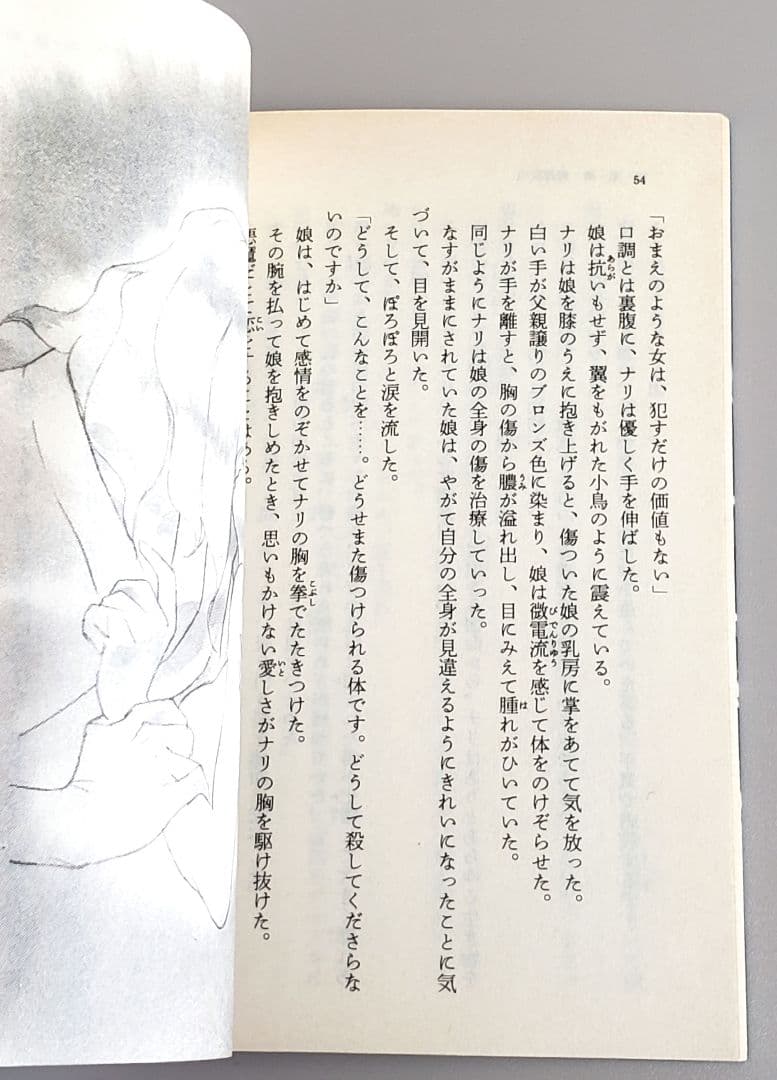 54
「おまえのような女は、犯すだけの価値もない」
口調とは裏腹に、ナリは優しく手を伸ばした。
娘は抗いもせず、翼をもがれた小鳥のように震えている。
ナリは娘を膝のうえに抱き上げると、傷ついた娘の乳房に掌をあてて気を放った。
白い手が父親譲りのブロンズ色に染まり、娘は微電流を感じて体をのけぞらせた。
ナリが手を離すと、胸の傷から膿が溢れ出し、目にみえて腫れがひいていた。
同じようにナリは娘の全身の傷を治療していった。
なすがままにされていた娘は、やがて自分の全身が見違えるようにきれいになったことに気
づいて、目を見開いた。
そして、ぽろぽろと涙を流した。
「どうして、こんなことを……。どうせまた傷つけられる体です。どうして殺してくださらな
いのですか」
娘は、はじめて感情をのぞかせてナリの胸を拳でたたきつけた。
その腕を払って娘を抱きしめたとき、思いもかけない愛しさがナリの胸を駆け抜けた。